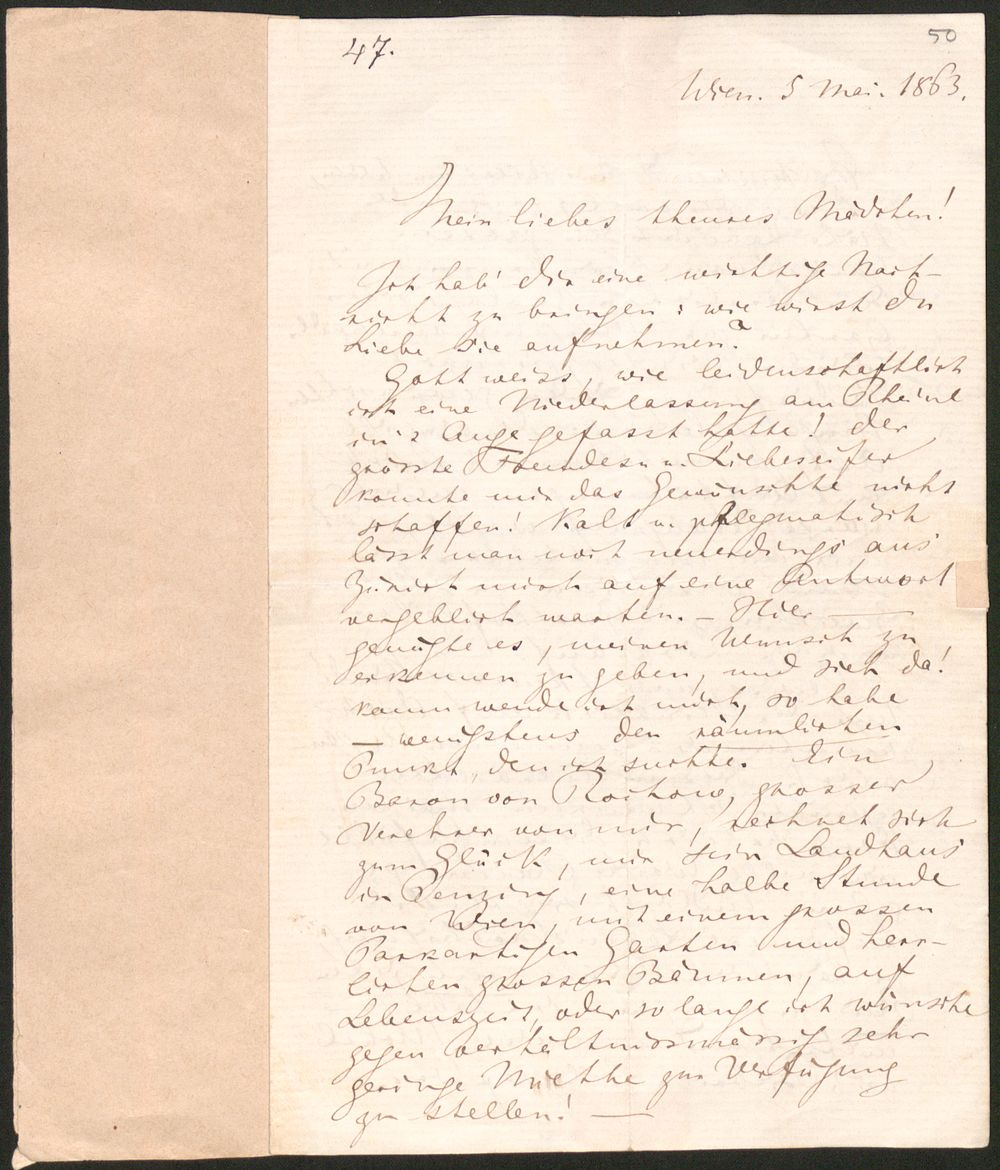 47.
50
Wien. 5 Mai. 1863.
Mein liebes theures Mädchen!
Ich hab' dir eine wichtige Nach-
richt zu bringen: wie wirst du
Liebe sie aufnehmen?
Gott weiss, wie leidenschaftlich
ich eine Niederlassung am Rheine
in's Auge gefasst hatte! Der
grösste Freundes= u. Liebeseifer
konnte mir das Gewünschte nicht
schaffen! Kalt u. phlegmatisch
lässt man noch neuerdings aus
Zürich mich auf eine Antwort
vergeblich warten. – Hier —
genügte es, meinen Wunsch zu
erkennen zu geben, und sieh da!
kaum wende ich mich, so habe
— wenigstens den räumlichen
Punkt, den ich suchte. Ein
Baron von Rochow, grosser
Verehrer von mir, rechnet sich
zum Glück, mir sein Landhaus
in Penzing, eine halbe Stunde
von Wien, mit einem grossen
Parkartigen Garten und herr-
lichen grossen Bäumen, auf
Lebenszeit, oder so lange ich wünsche
gegen verhältnissmässig sehr
geringe Miethe zur Verfügung
zu stellen! —